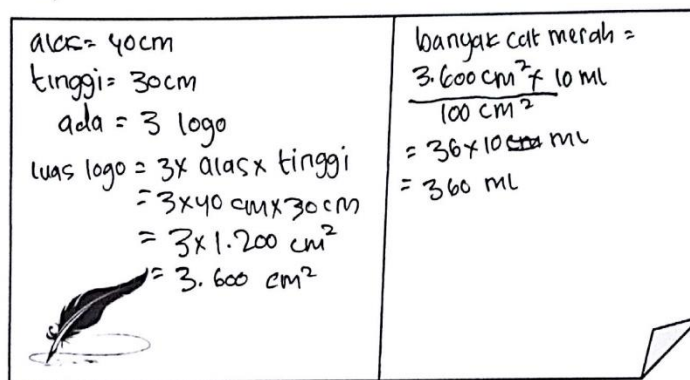 alas = 40cm
tinggi = 30cm
ada = 3 logo
luas logo = 3x alas x tinggi
= 3x40 cm x 30 cm
= 3x1.200 cm²
= 3.600 cm²
banyak cat merah =
3.600 cm² x 10 ml
100 cm²
= 36x10 cm ml
= 360 ml